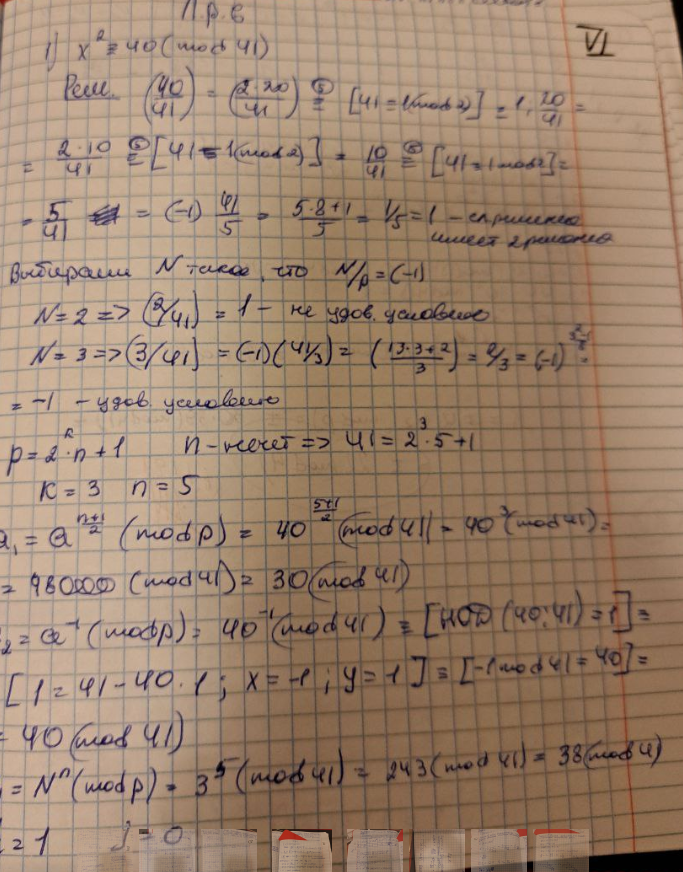 П.р. 6
VI
1) x² ≡ 40 (mod 41)
Реш. (40/41) = (2·20/41) ≡ [41 = 1(mod 2)] = 1 · 20/41 =
= 2·10/41 ≡ [41 = 1(mod 2)] = 10/41 ≡ [41 = 1 mod 2] =
= 5/41 = (-1) 41/5 = 5·8+1/5 = 1/5 = 1 –
имеет 2 решения
Выбираем N такое, что N/p = (-1)
N = 2 => (2/41) = 1 – не удов. условию
N = 3 => (3/41) = (-1)(41/3) = (13·3+2/3) = 2/3 = (-1)
= -1 – удов. условию
p = 2ᵏ·n+1 n – нечет => 41 = 2³·5+1
K = 3 n = 5
a₁ = a^(n+1)/2 (mod p) = 40^(5+1)/2 (mod 41) = 40³ (mod 41) =
(mod 41) = 30 (mod 41)
₂ = a⁻¹ (mod p) = 40⁻¹ (mod 41) ≡ [НОД (40; 41) = 1] =
[1 = 41 - 40·1; x = -1; y = 1] ≡ [-1 mod 41 = 40] =
= 40 (mod 41)
= Nⁿ (mod p) = 3⁵ (mod 41) = 243 (mod 41) = 38 (mod 41)
= 1 j = 0